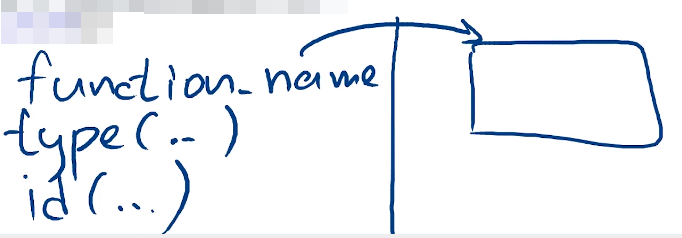 function_name
type(..)
id(...)